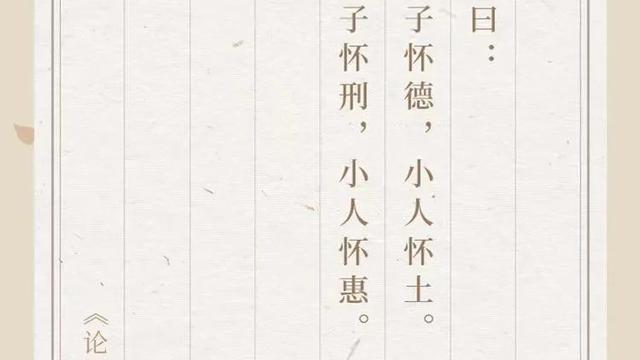 曰：
子怀德，小人怀土。
子怀刑，小人怀惠。
《论